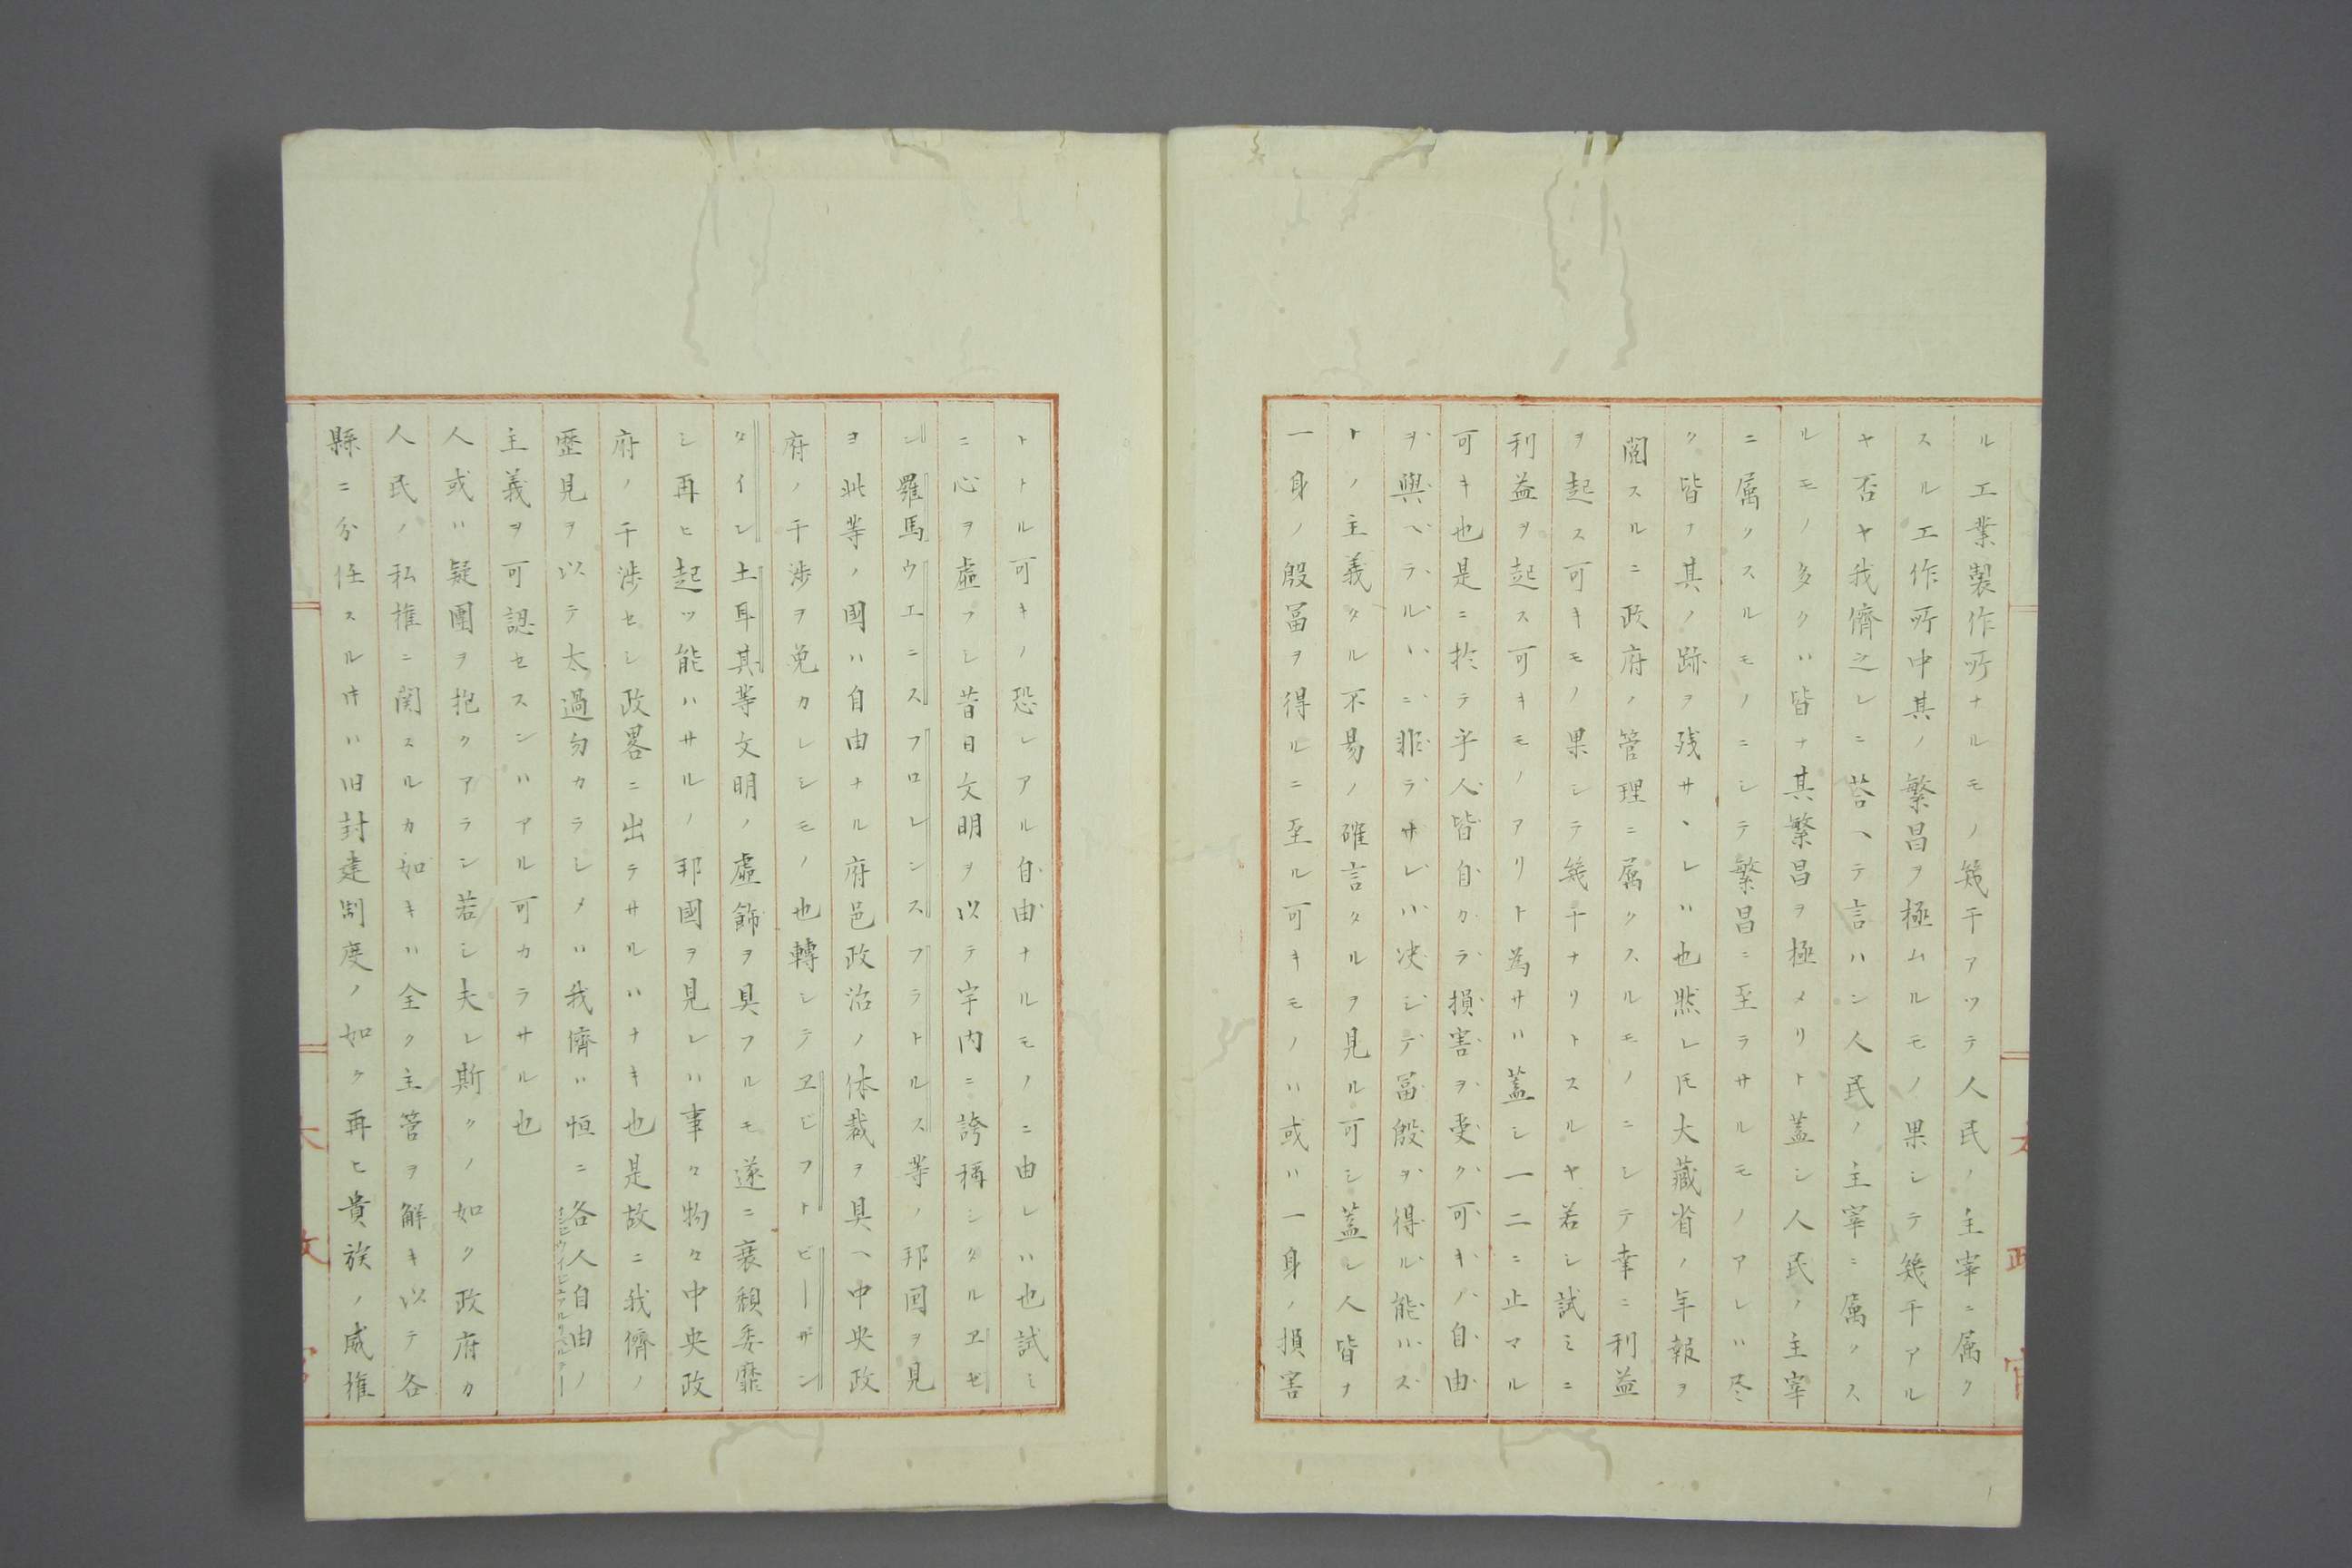 ル工業製作所ナルモノ幾干アツテ人民ノ主宰ニ属ク
スル工作所中其ノ繁昌ヲ極ムルモノ果シテ幾干アル
ヤ否ヤ我儕之レニ荅ヘテ言ハン人民ノ主宰ニ属クス
ルモノ多クハ皆ナ其繁昌ヲ極メリト蓋シ人民ノ主宰
ニ属クスルモノニシテ繁昌ニ至ラサルモノアレハ尽
ク皆ナ其ノ跡ヲ残サヽレハ也然レ𪜈大藏省ノ年報ヲ
閲スルニ政府ノ管理ニ属クスルモノニシテ幸ニ利益
ヲ起ス可キモノ果シテ幾干ナリトスルヤ若シ試ミニ
利益ヲ起ス可キモノアリト為サハ蓋シ一二ニ止マル
可キ也是ニ於テ乎人皆自カラ損害ヲ受ク可キノ自由
ヲ與ヘラルヽニ非ラサレハ决シテ冨殷ヲ得ル能ハス
トノ主義タル不易ノ確言タルヲ見ル可シ蓋シ人皆ナ
一身ノ殷冨ヲ得ルニ至ル可キモノハ或ハ一身ノ損害
トトル可キノ恐レアル自由ナルモノニ由レハ也試ミ
ニ心ヲ虚フシ昔日文明ヲ以テ宇内ニ誇稱シタルヱセ
ン羅馬ウエニスフロレンスフラトルス等ノ邦囯ヲ見
ヨ此等ノ國ハ自由ナル府邑政治ノ体裁ヲ具ヘ中央政
府ノ干渉ヲ免カレシモノ也轉シテヱジフトビーザン
タイン土耳其等文明ノ虚飾ヲ具フルモ遂ニ衰頽委靡
シ再ヒ起ツ能ハサルノ邦國ヲ見レハ事々物々中央政
府ノ干渉セシ政畧ニ出テサルハナキ也是故ニ我儕ノ
歴見ヲ以テ太過勿カラシメハ我儕ハ恒ニ各人自由ノ
主義ヲ可認セスンハアル可カラサル也
人或ハ疑團ヲ抱クアラン若シ夫レ斯クノ如ク政府カ
人民ノ私権ニ関スルカ如キハ全ク主管ヲ解キ以テ各
縣ニ分任スル𪜈ハ旧封建制度ノ如ク再ヒ貴族ノ威権